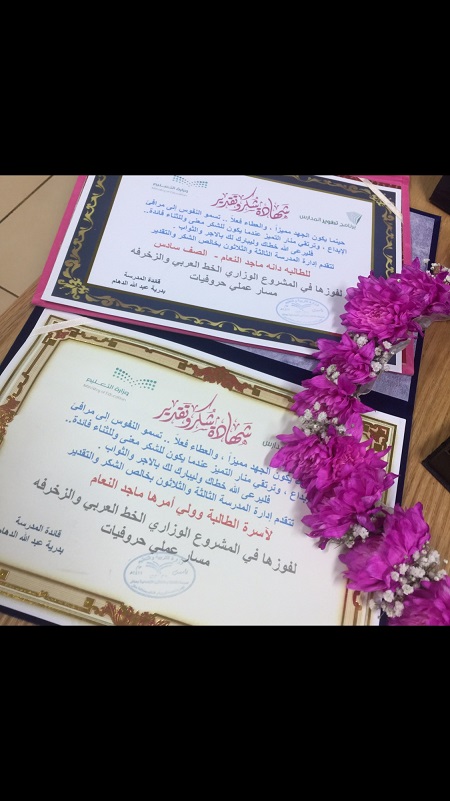 وزارة التعليم
شهادة شكر وتقدير
برنامج تطوير المدارس
حينما يكون الجهد مميزاً ، والعطاء فعلاً .. تسمو النفوس إلى مراقي
الإبداع ، وترتقي منار التميز عندما يكون للشكر معنى وللثناء فائدة..
فليرعى الله خطاك وليبارك لك بالأجر والثواب .
تتقدم إدارة المدرسة الثالثة والثلاثون بخالص الشكر والتقدير
للطالبة دانه ماجد النعام - الصف سادس
لفوزها في المشروع الوزاري الخط العربي والزخرفه
مسار عملي حروفيات
قائدة المدرسة
بدرية عبد الله الدهام
وزارة التعليم
شهادة شكر وتقدير
المدارس
يكون الجهد مميزاً ، والعطاء فعلاً .. تسمو النفوس إلى مراقي
الإبداع ، وترتقي منار التميز عندما يكون للشكر معنى وللثناء فائدة..
فليرعى الله خطاك وليبارك لك بالأجر والثواب .
تتقدم إدارة المدرسة الثالثة والثلاثون بخالص الشكر والتقدير
لأسرة الطالبة وولي أمرها ماجد النعام
لفوزها في المشروع الوزاري الخط العربي والزخرفه
مسار عملي حروفيات
قائدة المدرسة
بدرية عبد الله الدهام